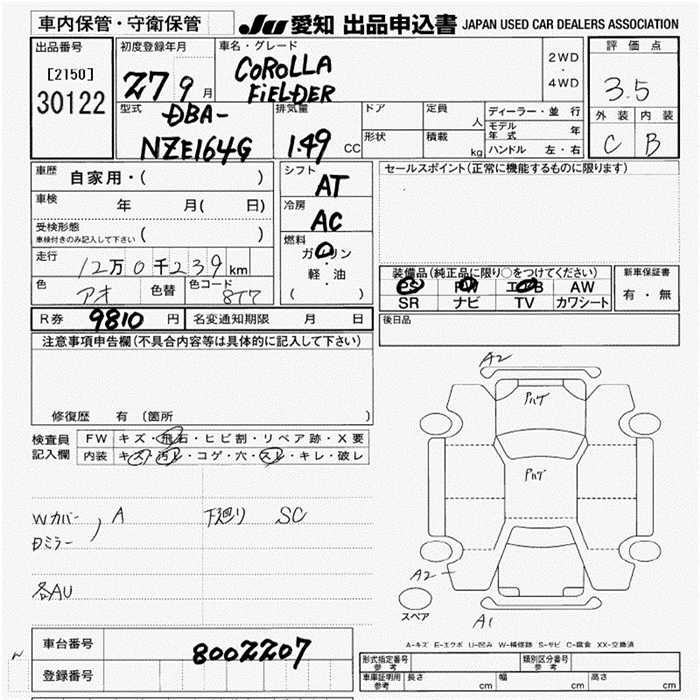 車内保管・守衛保管
JU 愛知 出品申込書 JAPAN USED CAR DEALERS ASSOCIATION
出品番号
[2150]
30122
初度登録年月
27 9 月
車名・グレード
COROLLA
FiELDER
2WD
・
4WD
評価点
3.5
外装 内装
C B
型式
DBA-
NZE164G
排気量
1.49 CC
ドア
定員 人
形状
積載 kg
ディーラー・並 行
モデル年式 年
ハンドル 左・右
車歴 自家用・( )
車検 年 月( 日)
受検形態
車検付きのみ記入して下さい ( )
走行 12万0千239km
色 アオ 色替 色コード 8T7
シフト
AT
冷房
AC
燃料
ガソリン
軽・油
( )
セールスポイント(正常に機能するものに限ります)
装備品(純正品に限り○をつけてください)
PS PW エアB AW
SR ナビ TV カワシート
新車保証書
有・無
R券 9810 円 名変通知期限 月 日
後日品
注意事項申告欄(不具合内容等は具体的に記入して下さい)
修復歴 有 〔箇所 〕
検査員
記入欄
FW キズ・飛石・ヒビ割・リペア跡・X要
内装 キズ・汚レ・コゲ・穴・スレ・キレ・破レ
Wカバー
Dミラー
, A
下廻り SC
各AU
A2
Pハゲ
Pハゲ
A2
スペア
A1
A-キズ E-エクボ U-凹み W-補修跡 S-サビ C-腐食 XX-交換済
車台番号 8002207
登録番号
形式指定番号
参考
類別区分番号
参考
車庫証明用
参考
長さ cm 幅 cm 高さ cm